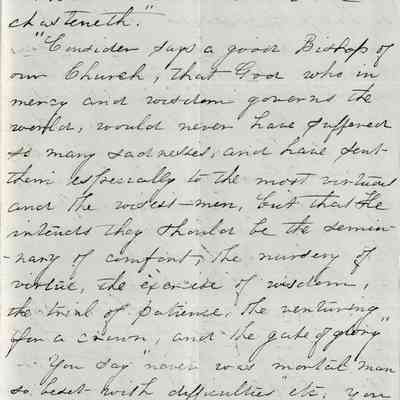 chasteneth."
"Consider says a good Bishop of
our Church, that God who in
mercy and wisdom governs the
world, would never have suffered
so many sadnesses, and have sent
them especially to the most virtuous
and the wisest-men, but that He
intends they should be the semin-
-nary of comfort, the nursery of
virtue, the exercise of wisdom,
the trial of patience, the venturing
for a crown, and the gate of glory"
You say "never was mortal man
so beset with difficulties" etc. You